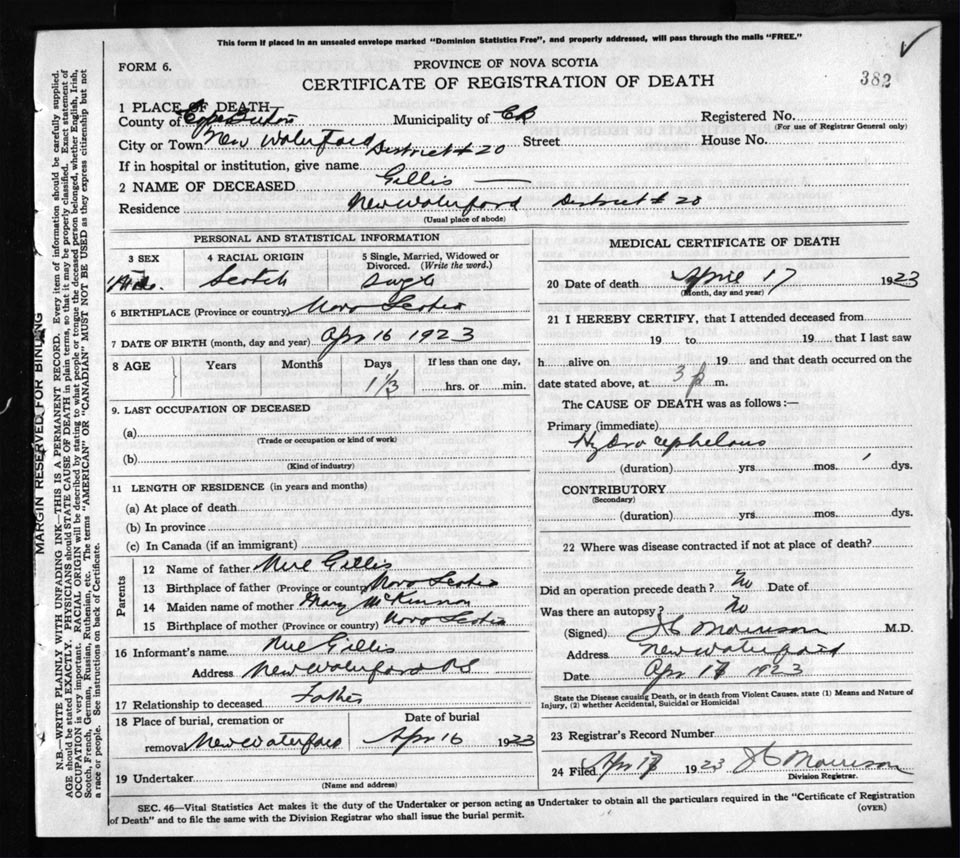 This form if placed in an unsealed envelope marked "Dominion Statistics Free", and properly addressed, will pass through the mails "FREE."
FORM 6.
PROVINCE OF NOVA SCOTIA
382
CERTIFICATE OF REGISTRATION OF DEATH
1 PLACE OF DEATH—
County of Cape Breton Municipality of CB Registered No.
(For use of Registrar General only)
City or Town New Waterford District # 20 Street House No.
If in hospital or institution, give name
2 NAME OF DECEASED Gillis —
Residence New Waterford District # 20
(Usual place of abode)
PERSONAL AND STATISTICAL INFORMATION
3 SEX
4 RACIAL ORIGIN
Scotch
5 Single, Married, Widowed or Divorced. (Write the word.)
Single
6 BIRTHPLACE (Province or country) Nova Scotia
7 DATE OF BIRTH (month, day and year) Apr 16 1923
8 AGE Years Months Days If less than one day,
hrs. or min.
9. LAST OCCUPATION OF DECEASED
(a)
(Trade or occupation or kind of work)
(b)
(Kind of industry)
11 LENGTH OF RESIDENCE (in years and months)
(a) At place of death
(b) In province
(c) In Canada (if an immigrant)
Parents
12 Name of father Gillis
13 Birthplace of father (Province or country) Nova Scotia
14 Maiden name of mother Mary McKinnon
15 Birthplace of mother (Province or country) Nova Scotia
16 Informant's name Gillis
Address New Waterford NS
17 Relationship to deceased Father
18 Place of burial, cremation or removal New Waterford
Date of burial
Apr 16 1923
19 Undertaker
(Name and address)
MEDICAL CERTIFICATE OF DEATH
20 Date of death April 17 1923
(Month, day and year)
21 I HEREBY CERTIFY, that I attended deceased from
19 to 19 that I last saw
h alive on 19 and that death occurred on the
date stated above, at 3 p m.
The CAUSE OF DEATH was as follows :—
Primary (immediate)
Hydrocephelous
(duration) yrs mos. dys.
CONTRIBUTORY
(Secondary)
(duration) yrs mos. dys.
22 Where was disease contracted if not at place of death?
Did an operation precede death ? No Date of
Was there an autopsy? No
(Signed) JC Morrison M.D.
Address New Waterford
Date Apr 17 1923
State the Disease causing Death, or in death from Violent Causes, state (1) Means and Nature of
Injury, (2) whether Accidental, Suicidal or Homicidal
23 Registrar's Record Number
24 Filed Apr 17 1923 JC Morrison
Division Registrar.
SEC. 46—Vital Statistics Act makes it the duty of the Undertaker or person acting as Undertaker to obtain all the particulars required in the "Certificate of Registration
of Death" and to file the same with the Division Registrar who shall issue the burial permit.
(OVER)
MARGIN RESERVED FOR BINDING
N.B.—WRITE PLAINLY WITH UNFADING INK—THIS IS A PERMANENT RECORD. Every item of information should be carefully supplied.
AGE should be stated EXACTLY. PHYSICIANS should STATE CAUSE OF DEATH in plain terms, so that it may be properly classified. Exact statement of
OCCUPATION is very important. RACIAL ORIGIN will be described by stating to what people or tongue the deceased person belonged, whether English, Irish,
Scotch, French, German, Russian, Ruthenian, etc. The terms "AMERICAN" or "CANADIAN" MUST NOT BE USED as they express citizenship but not
a race or people. See instructions on back of Certificate.